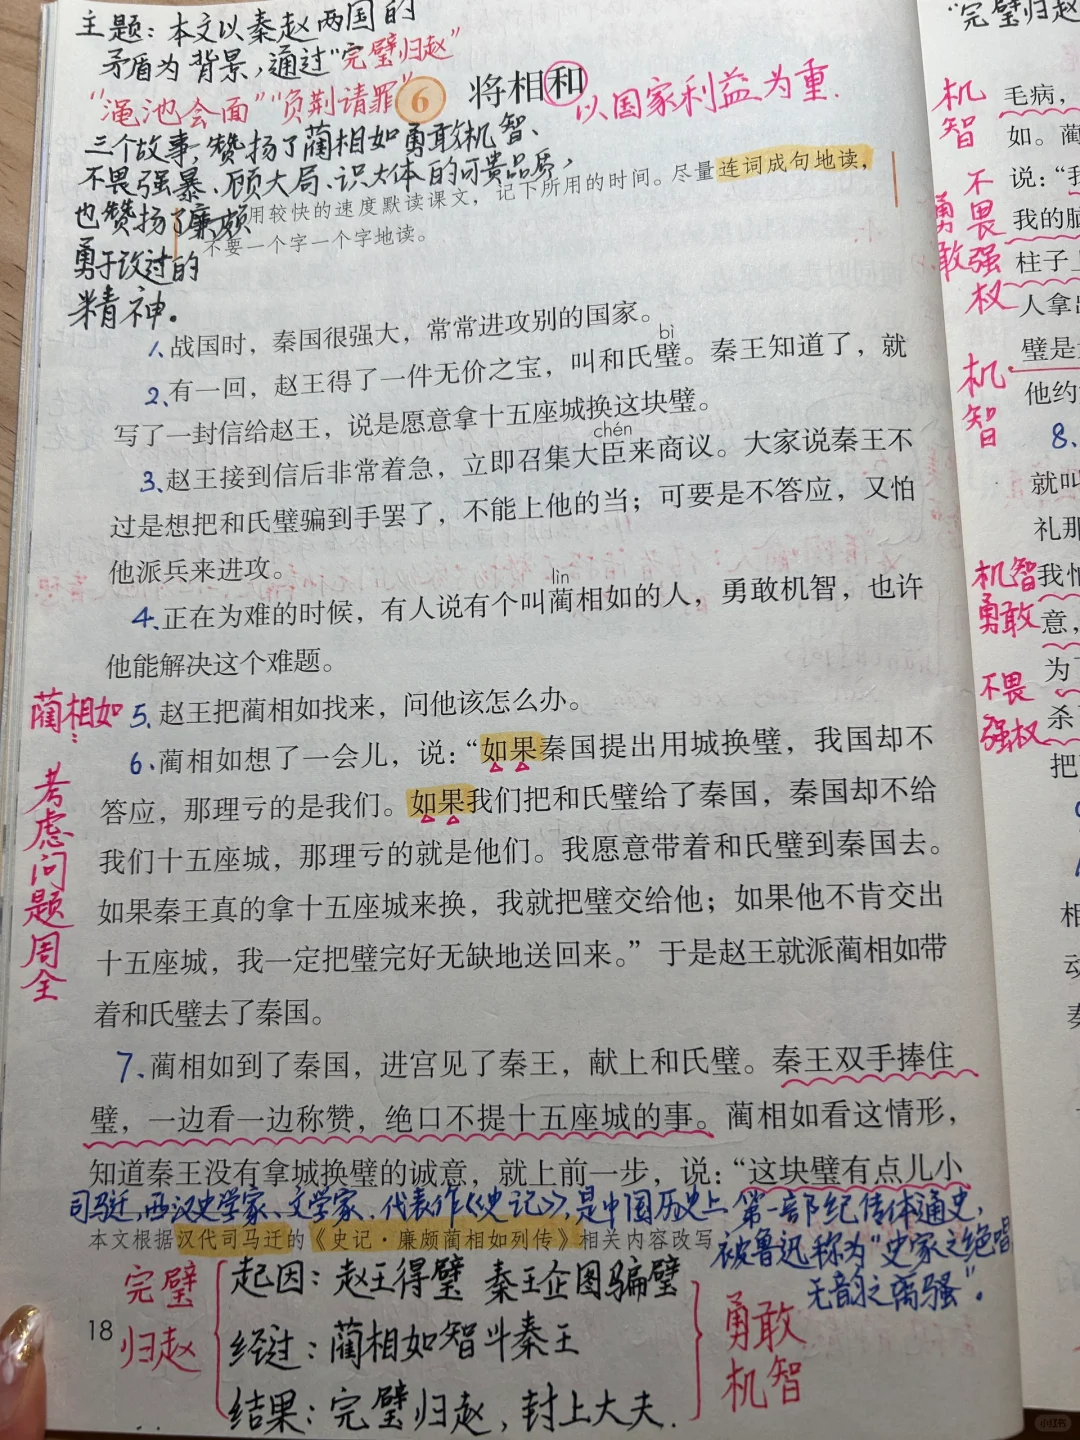 主题：本文以秦赵两国的
矛盾为背景，通过“完璧归赵”
“渑池会面”“负荆请罪”
三个故事，赞扬了蔺相如勇敢机智、
不畏强暴、顾大局、识大体的可贵品质，
也赞扬了廉颇
勇于改过的
精神。
6 将相和
以国家利益为重.
用较快的速度默读课文，记下所用的时间。尽量连词成句地读，
不要一个字一个字地读。
1、战国时，秦国很强大，常常进攻别的国家。
bì
2、有一回，赵王得了一件无价之宝，叫和氏璧。秦王知道了，就
写了一封信给赵王，说是愿意拿十五座城换这块璧。
chén
3、赵王接到信后非常着急，立即召集大臣来商议。大家说秦王不
过是想把和氏璧骗到手罢了，不能上他的当；可要是不答应，又怕
他派兵来进攻。
lìn
4、正在为难的时候，有人说有个叫蔺相如的人，勇敢机智，也许
他能解决这个难题。
5、赵王把蔺相如找来，问他该怎么办。
6、蔺相如想了一会儿，说：“如果秦国提出用城换璧，我国却不
答应，那理亏的是我们。如果我们把和氏璧给了秦国，秦国却不给
我们十五座城，那理亏的就是他们。我愿意带着和氏璧到秦国去。
如果秦王真的拿十五座城来换，我就把璧交给他；如果他不肯交出
十五座城，我一定把璧完好无缺地送回来。”于是赵王就派蔺相如带
着和氏璧去了秦国。
蔺相如：
考虑问题周全
7、蔺相如到了秦国，进宫见了秦王，献上和氏璧。秦王双手捧住
璧，一边看一边称赞，绝口不提十五座城的事。蔺相如看这情形，
知道秦王没有拿城换璧的诚意，就上前一步，说：“这块璧有点儿小
司马迁，西汉史学家、文学家.代表作《史记》，是中国历史上第一部纪传体通史，
被鲁迅称为“史家之绝唱
无韵之离骚”.
本文根据汉代司马迁的《史记·廉颇蔺相如列传》相关内容改写
完璧
归赵
起因：赵王得璧 秦王企图骗璧
经过：蔺相如智斗秦王
结果：完璧归赵，封上大夫.
勇敢
机智
18
“完璧归赵
机智
毛病，
如。蔺
说：“我
不畏强权
勇敢
我的脑
柱子上
人拿出
璧是
他约
机智
8、
就叫
礼那
机智
勇敢
我怕
意，
为了
不畏
强权
杀
把
相
动
秦
小红书